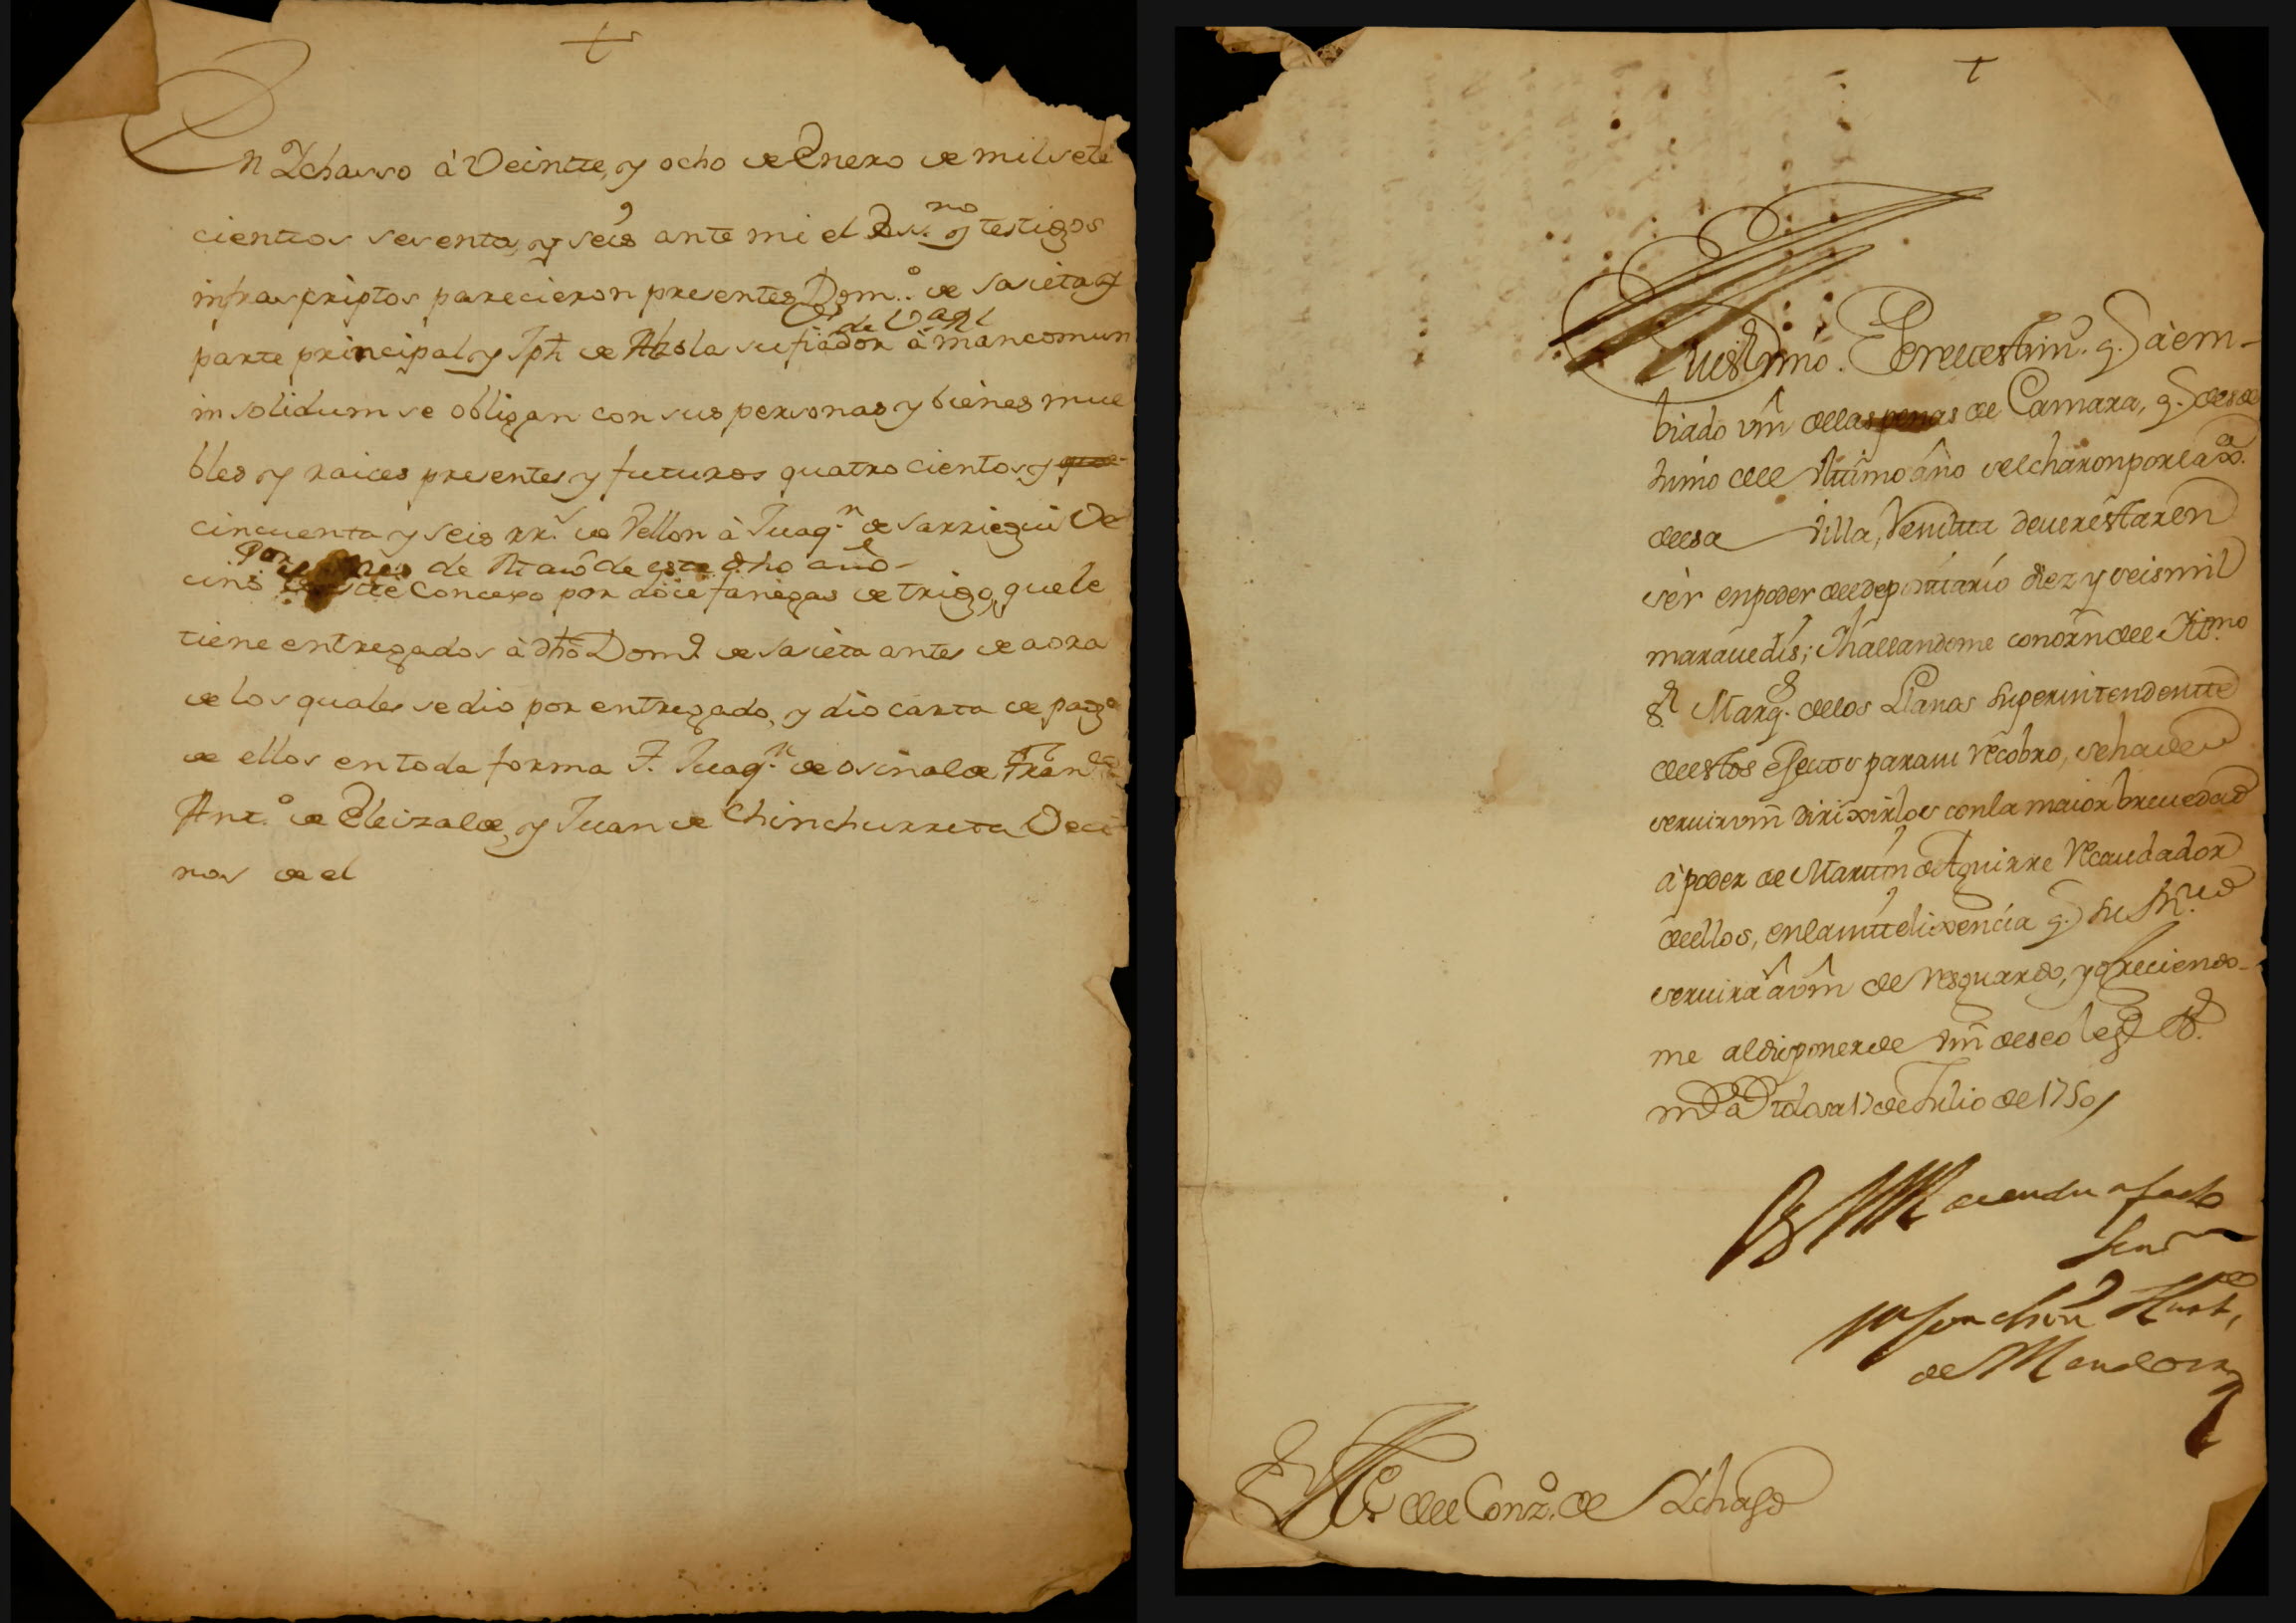 t
En Ichasso à Veintte, y ocho de Enero de mil sete
cientos sesenta, y seis ante mi el Ess.no y testigos
infrascriptos parecieron presentes Dom.o de Sasieta
parte principal, y Jph de Aldasoro su fiador à mancomun
in solidum se obligan con sus personas y bienes mue
bles y raices presentes y futuros quatrocientos y
cincuenta y seis rr.s de Vellon à Juaq.n de Sarriegui Ve
Por de Maio de este dho año
cino de este Concexo por doce fanegas de trigo, que le
tiene entregados à dho Dom.o de Sasieta antes de aora
de los quales se dio por entregado, y dio carta de pago
de ellos en toda forma T. Juaq.n de Osinalde Fran.co
Ant.o de Eleizalde, y Juan de Chinchurreta Veci
nos de el
t
Por el testim.o q. à em-
biado vm de las penas de Camara, q. desde
Junio del Ultimo año se echaron por la
de esa Villa, Resulta deuer estar en
ser en poder del depositario diez y seis mil
marauedis; Y hallandome con orn del Iltmo
S.r Marq.s de los Llanos Superintendentte
de estos efectos para su recobro, se ha de
seruir vm dirixirlos con la maior breuedad
à poder de Martin de Aguirre Recaudador
de ellos, en la intelixencia q. su
seruirà à vm de resguardo, y ofreciendo-
me al disponer de vm deseo le
m a Tolosa 17 de Julio de 1750
B L M de vm su afecto
seru.r
Hurt.do
de Mendoza
S.r Alc.e del Conz.o de Ichaso